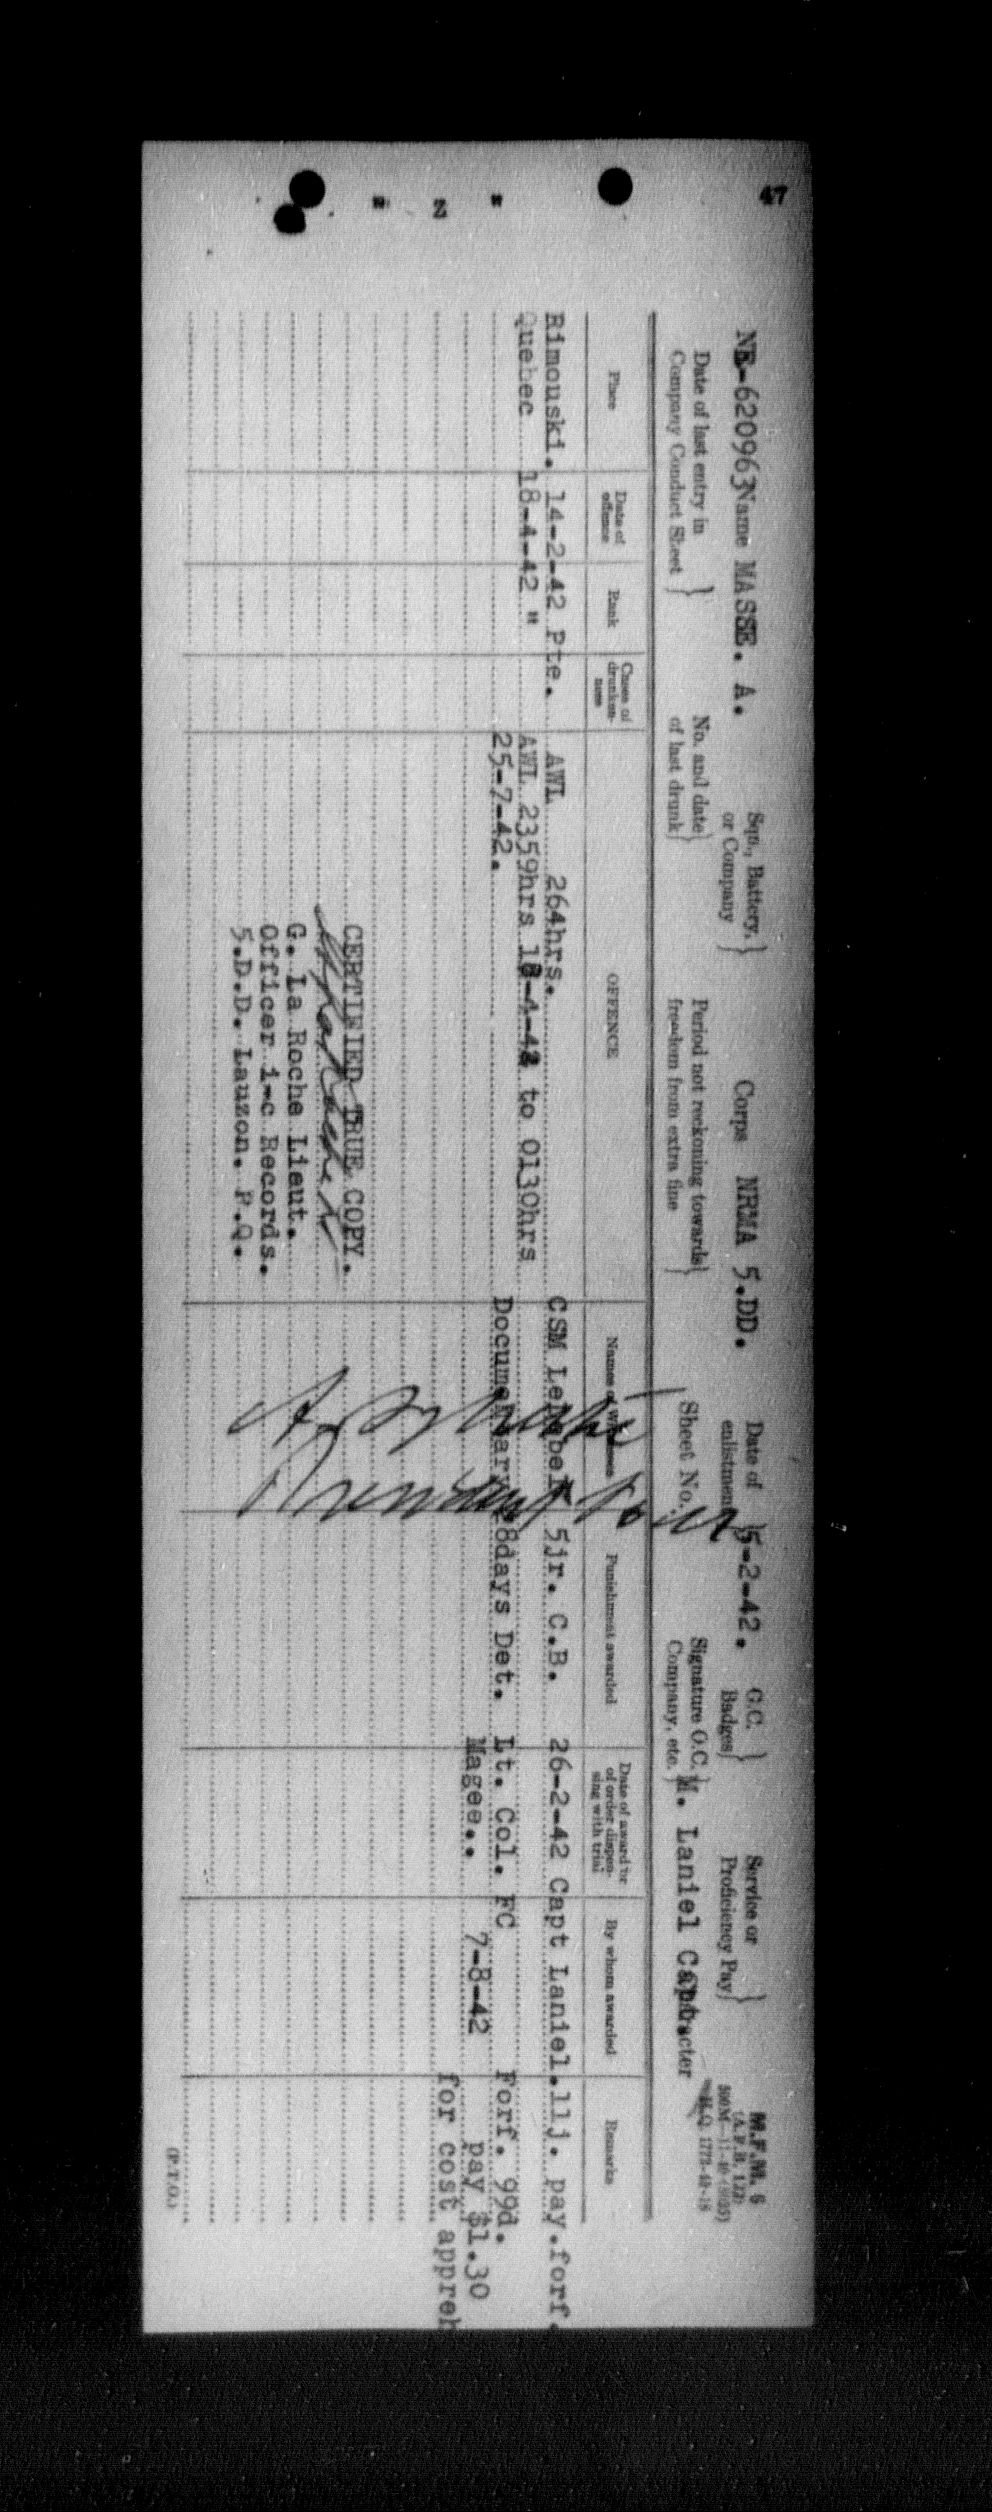 47
" 2 "
M.F.M. 6
(A.F.B. 122)
500M—11-40
H.Q. 1772-39-18
NE-620963 Name MASSE. A.
Sqn., Battery, or Company
Corps NRMA 5.DD.
Date of enlistment 5-2-42.
G.C. Badges
Service or Proficiency Pay
Date of last entry in Company Conduct Sheet
No. and date of last drunk
Period not reckoning towards freedom from extra fine
Sheet No.
Signature O.C. Company, etc. M. Laniel Capt.
Place Date of offence Rank Cases of drunkenness OFFENCE Names of Witnesses Punishment awarded Date of award or of order dispensing with trial By whom awarded Remarks
Rimouski. 14-2-42 Pte. AWL 264hrs. CSM 5jr. C.B. 26-2-42 Capt Laniel. 11j. pay.forf.
Quebec 18-4-42 " AWL 2359hrs 18-4-42 to 0130hrs
25-7-42. Documentary 28days Det. Lt. Col. FC Forf. 99d.
Magee.. 7-8-42 pay $1.30
for cost appreh
CERTIFIED TRUE COPY.
G. La Roche Lieut.
Officer i-c Records.
5.D.D. Lauzon. P.Q.
(P.T.O.)